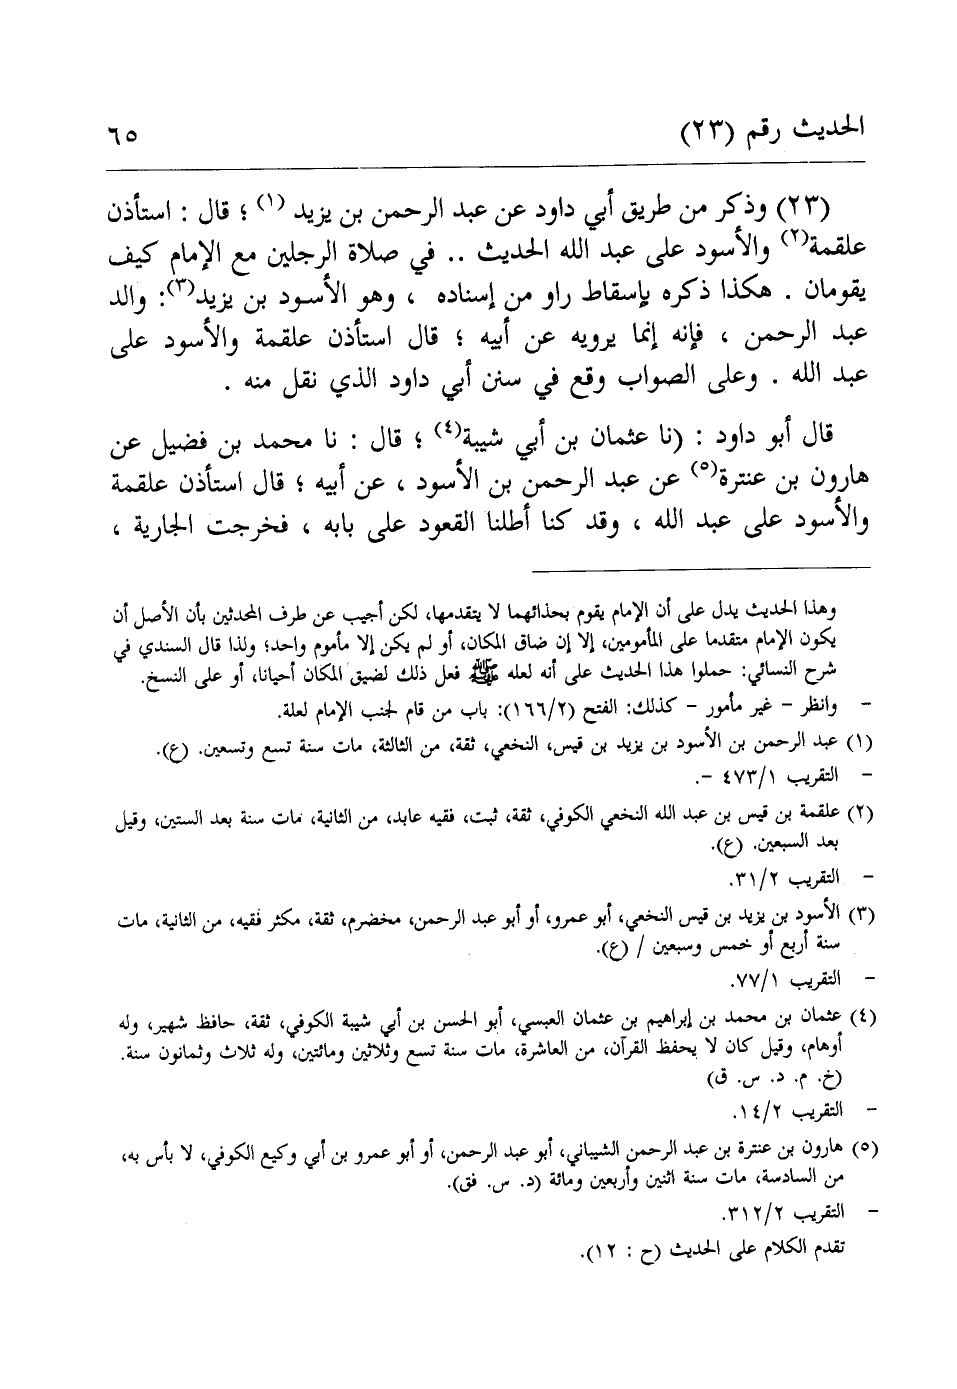 الحديث رقم (٢٣) ٦٥
(٢٣) وذكر من طريق أبي داود عن عبد الرحمن بن يزيد (١) ؛ قال : استأذن
علقمة(٢) والأسود على عبد الله الحديث .. في صلاة الرجلين مع الإمام كيف
يقومان . هكذا ذكره بإسقاط راو من إسناده ، وهو الأسود بن يزيد(٣): والد
عبد الرحمن ، فإنه إنما يرويه عن أبيه ؛ قال استأذن علقمة والأسود على
عبد الله . وعلى الصواب وقع في سنن أبي داود الذي نقل منه .
قال أبو داود : (نا عثمان بن أبي شيبة(٤) ؛ قال : نا محمد بن فضيل عن
هارون بن عنترة(٥) عن عبد الرحمن بن الأسود ، عن أبيه ؛ قال استأذن علقمة
والأسود على عبد الله ، وقد كنا أطلنا القعود على بابه ، فخرجت الجارية ،
وهذا الحديث يدل على أن الإمام يقوم بحذائهما لا يتقدمها، لكن أجيب عن طرف المحدثين بأن الأصل أن
يكون الإمام متقدما على المأمومين، إلا إن ضاق المكان، أو لم يكن إلا مأموم واحد؛ ولذا قال السندي في
شرح النسائي: حملوا هذا الحديث على أنه لعله ﷺ فعل ذلك لضيق المكان أحيانا، أو على النسخ.
- وانظر - غير مأمور - كذلك: الفتح (١٦٦/٢): باب من قام لجنب الإمام لعلة.
(١) عبد الرحمن بن الأسود بن يزيد بن قيس، النخعي، ثقة، من الثالثة، مات سنة تسع وتسعين. (ع).
- التقريب ٤٧٣/١ -.
(٢) علقمة بن قيس بن عبد الله النخعي الكوفي، ثقة، ثبت، فقيه عابد، من الثانية، مات سنة بعد الستين، وقيل
بعد السبعين. (ع).
- التقريب ٣١/٢.
(٣) الأسود بن يزيد بن قيس النخعي، أبو عمرو، أو أبو عبد الرحمن، مخضرم، ثقة، مكثر فقيه، من الثانية، مات
سنة أربع أو خمس وسبعين / (ع).
- التقريب ٧٧/١.
(٤) عثمان بن محمد بن إبراهيم بن عثمان العبسي، أبو الحسن بن أبي شيبة الكوفي، ثقة، حافظ شهير، وله
أوهام، وقيل كان لا يحفظ القرآن، من العاشرة، مات سنة تسع وثلاثين ومائتين، وله ثلاث وثمانون سنة.
(خ. م. د. س. ق)
- التقريب ١٤/٢.
(٥) هارون بن عنترة بن عبد الرحمن الشيباني، أبو عبد الرحمن، أو أبو عمرو بن أبي وكيع الكوفي، لا بأس به،
من السادسة، مات سنة اثنين وأربعين ومائة (د. س. فق).
- التقريب ٣١٢/٢.
تقدم الكلام على الحديث (ح : ١٢).